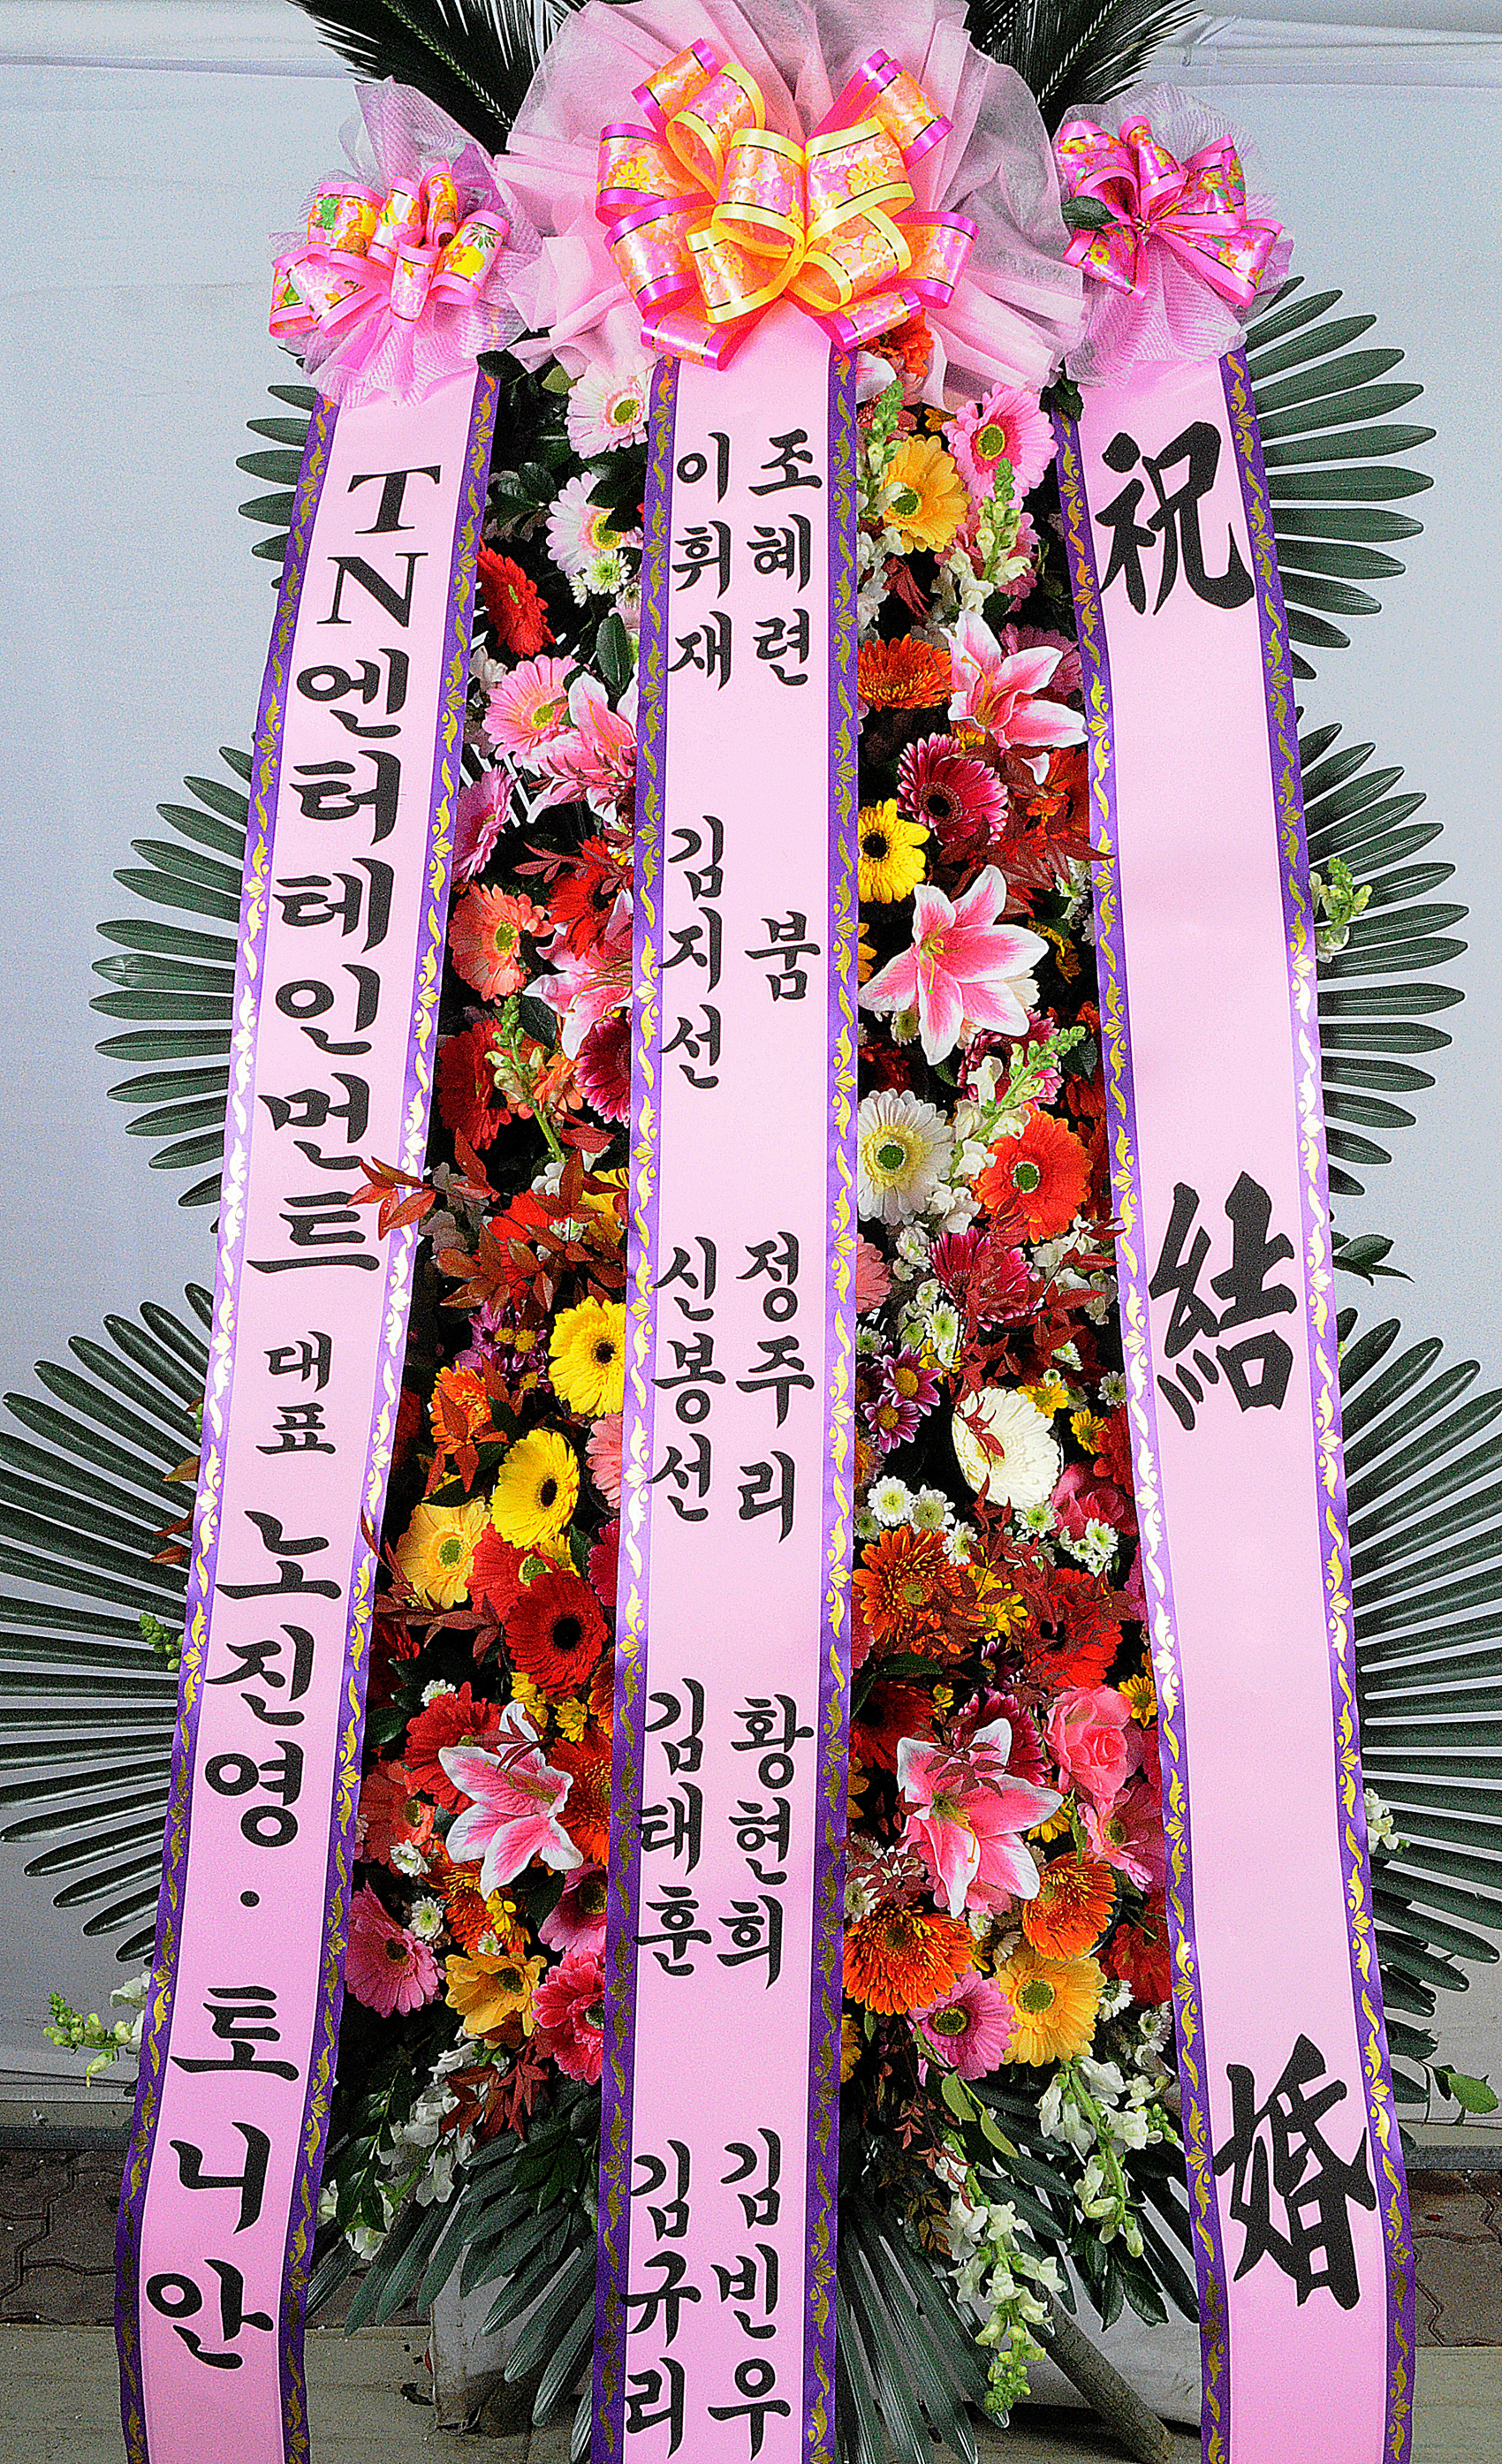 祝結婚
조혜련 붐 정주리 황현희 김빈우
이휘재 김지선 신봉선 김태훈 김규리
TN엔터테인먼트 대표 노진영·토니안